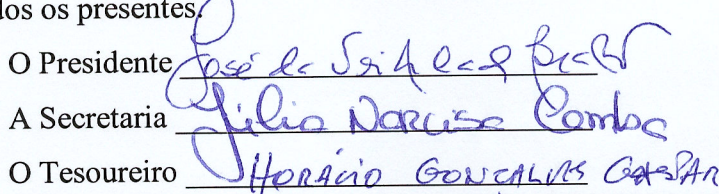 dos os presentes.
O Presidente José da
A Secretaria Júlio Narciso Comba
O Tesoureiro HORÁCIO GONÇALVES GASPAR